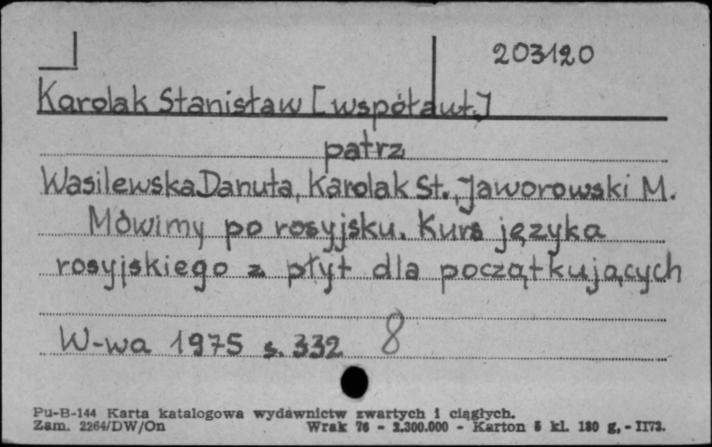 203120
Karolak Stanisław [współaut.]
patrz
Wasilewska Danuta, Karolak St., Jaworowski M.
Mówimy po rosyjsku. Kurs języka
rosyjskiego z płyt dla początkujących
W-wa 1975 s. 332 8
Pu-B-144 Karta katalogowa wydawnictw zwartych i ciągłych.
Zam. 2264/DW/On Wrak 76 - 2.300.000 - Karton 5 kl. 180 g, - II72.